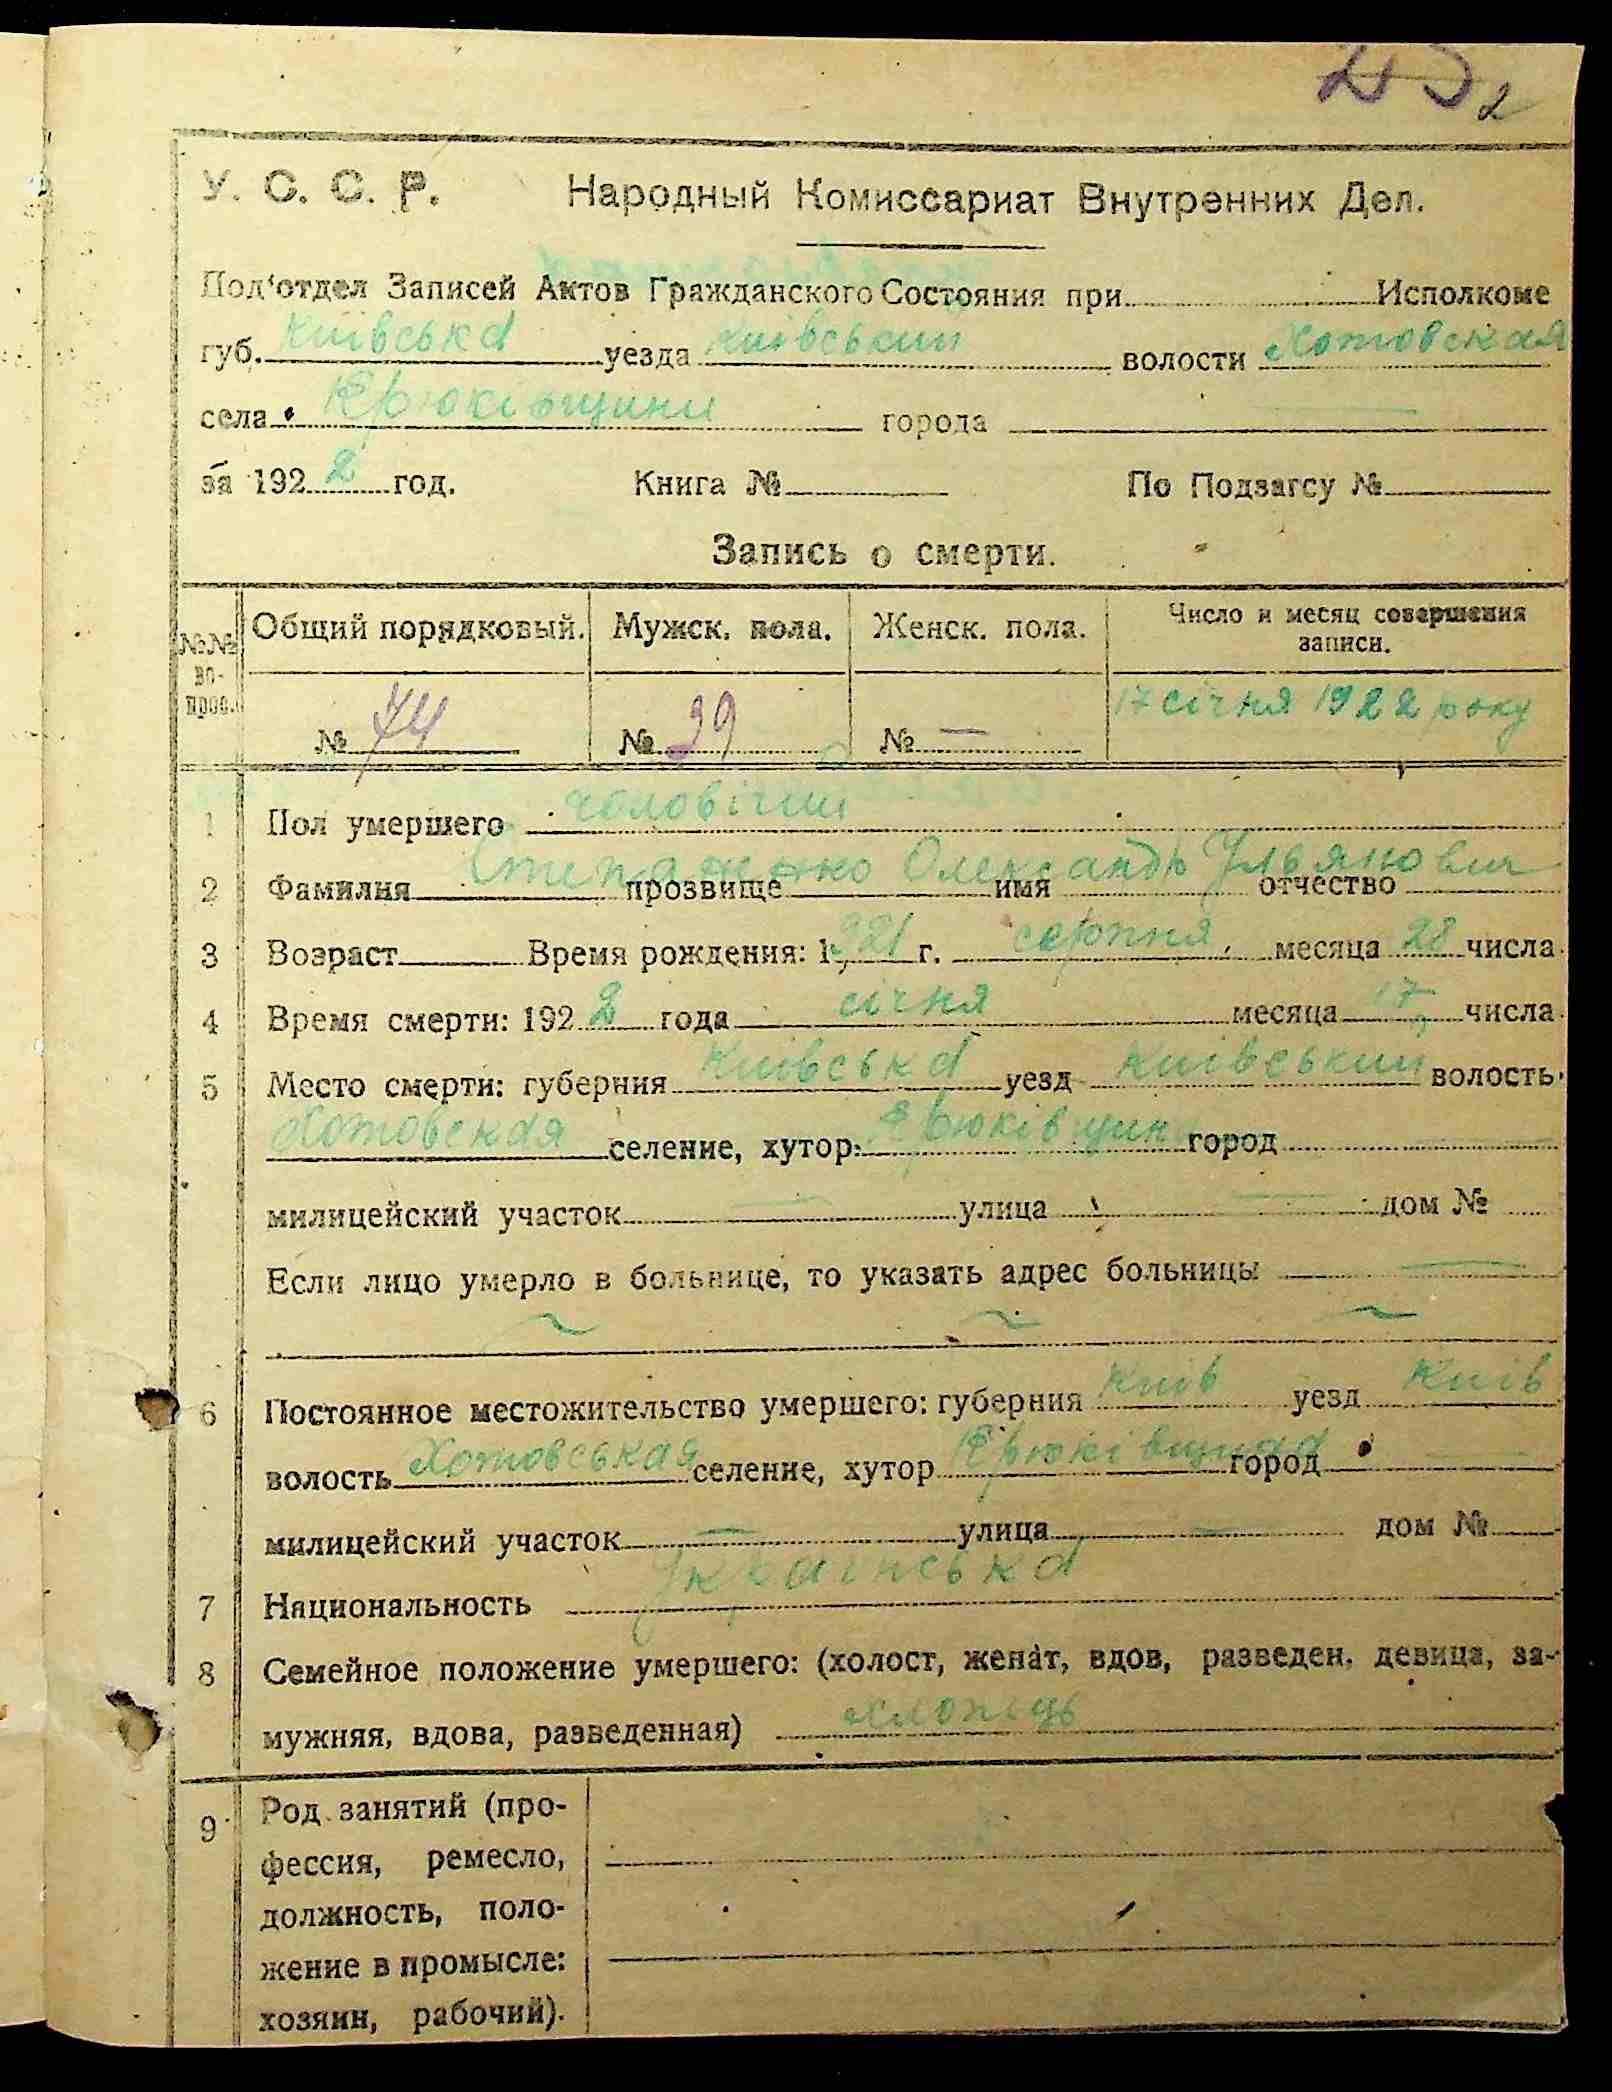 2
У. С. С. Р. Народный Комиссариат Внутренних Дел.
Под‘отдел Записей Актов Гражданского Состояния при Исполкоме
губ. Київська уезда Київський волости Хотовская
села Крюківщини города —
за 1922 год. Книга № По Подзагсу №
Запись о смерти.
№№ вопрос. Общий порядковый. Мужск. пола. Женск. пола. Число и месяц совершения записи.
№ 74 № 39 № — 17 січня 1922 року
1 Пол умершего чоловічий
2 Фамилия Степаненко прозвище имя Олександр отчество Ульянович
3 Возраст Время рождения: 1921 г. серпня месяца 28 числа
4 Время смерти: 1922 года січня месяца 17 числа
5 Место смерти: губерния Київська уезд Київський волость
Хотовская селение, хутор: Крюківщин город —
милицейский участок — улица — дом №
Если лицо умерло в больнице, то указать адрес больницы —
~ ~ ~
6 Постоянное местожительство умершего: губерния Київ уезд Київ
волость Хотовськая селение, хутор Крюківщина город —
милицейский участок — улица — дом №
7 Национальность Українська
8 Семейное положение умершего: (холост, женат, вдов, разведен, девица, за-
мужняя, вдова, разведенная) хлопець
9 Род занятий (про-
фессия, ремесло,
должность, поло-
жение в промысле:
хозяин, рабочий).